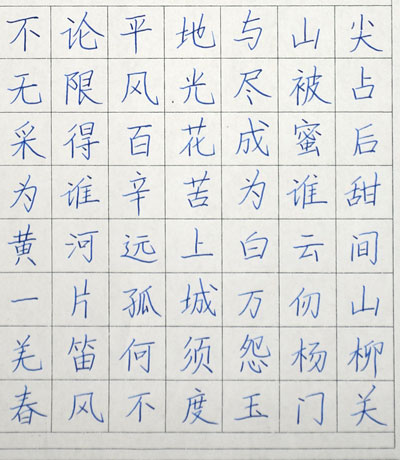 不论平地与山尖
无限风光尽被占
采得百花成蜜后
为谁辛苦为谁甜
黄河远上白云间
一片孤城万仞山
羌笛何须怨杨柳
春风不度玉门关